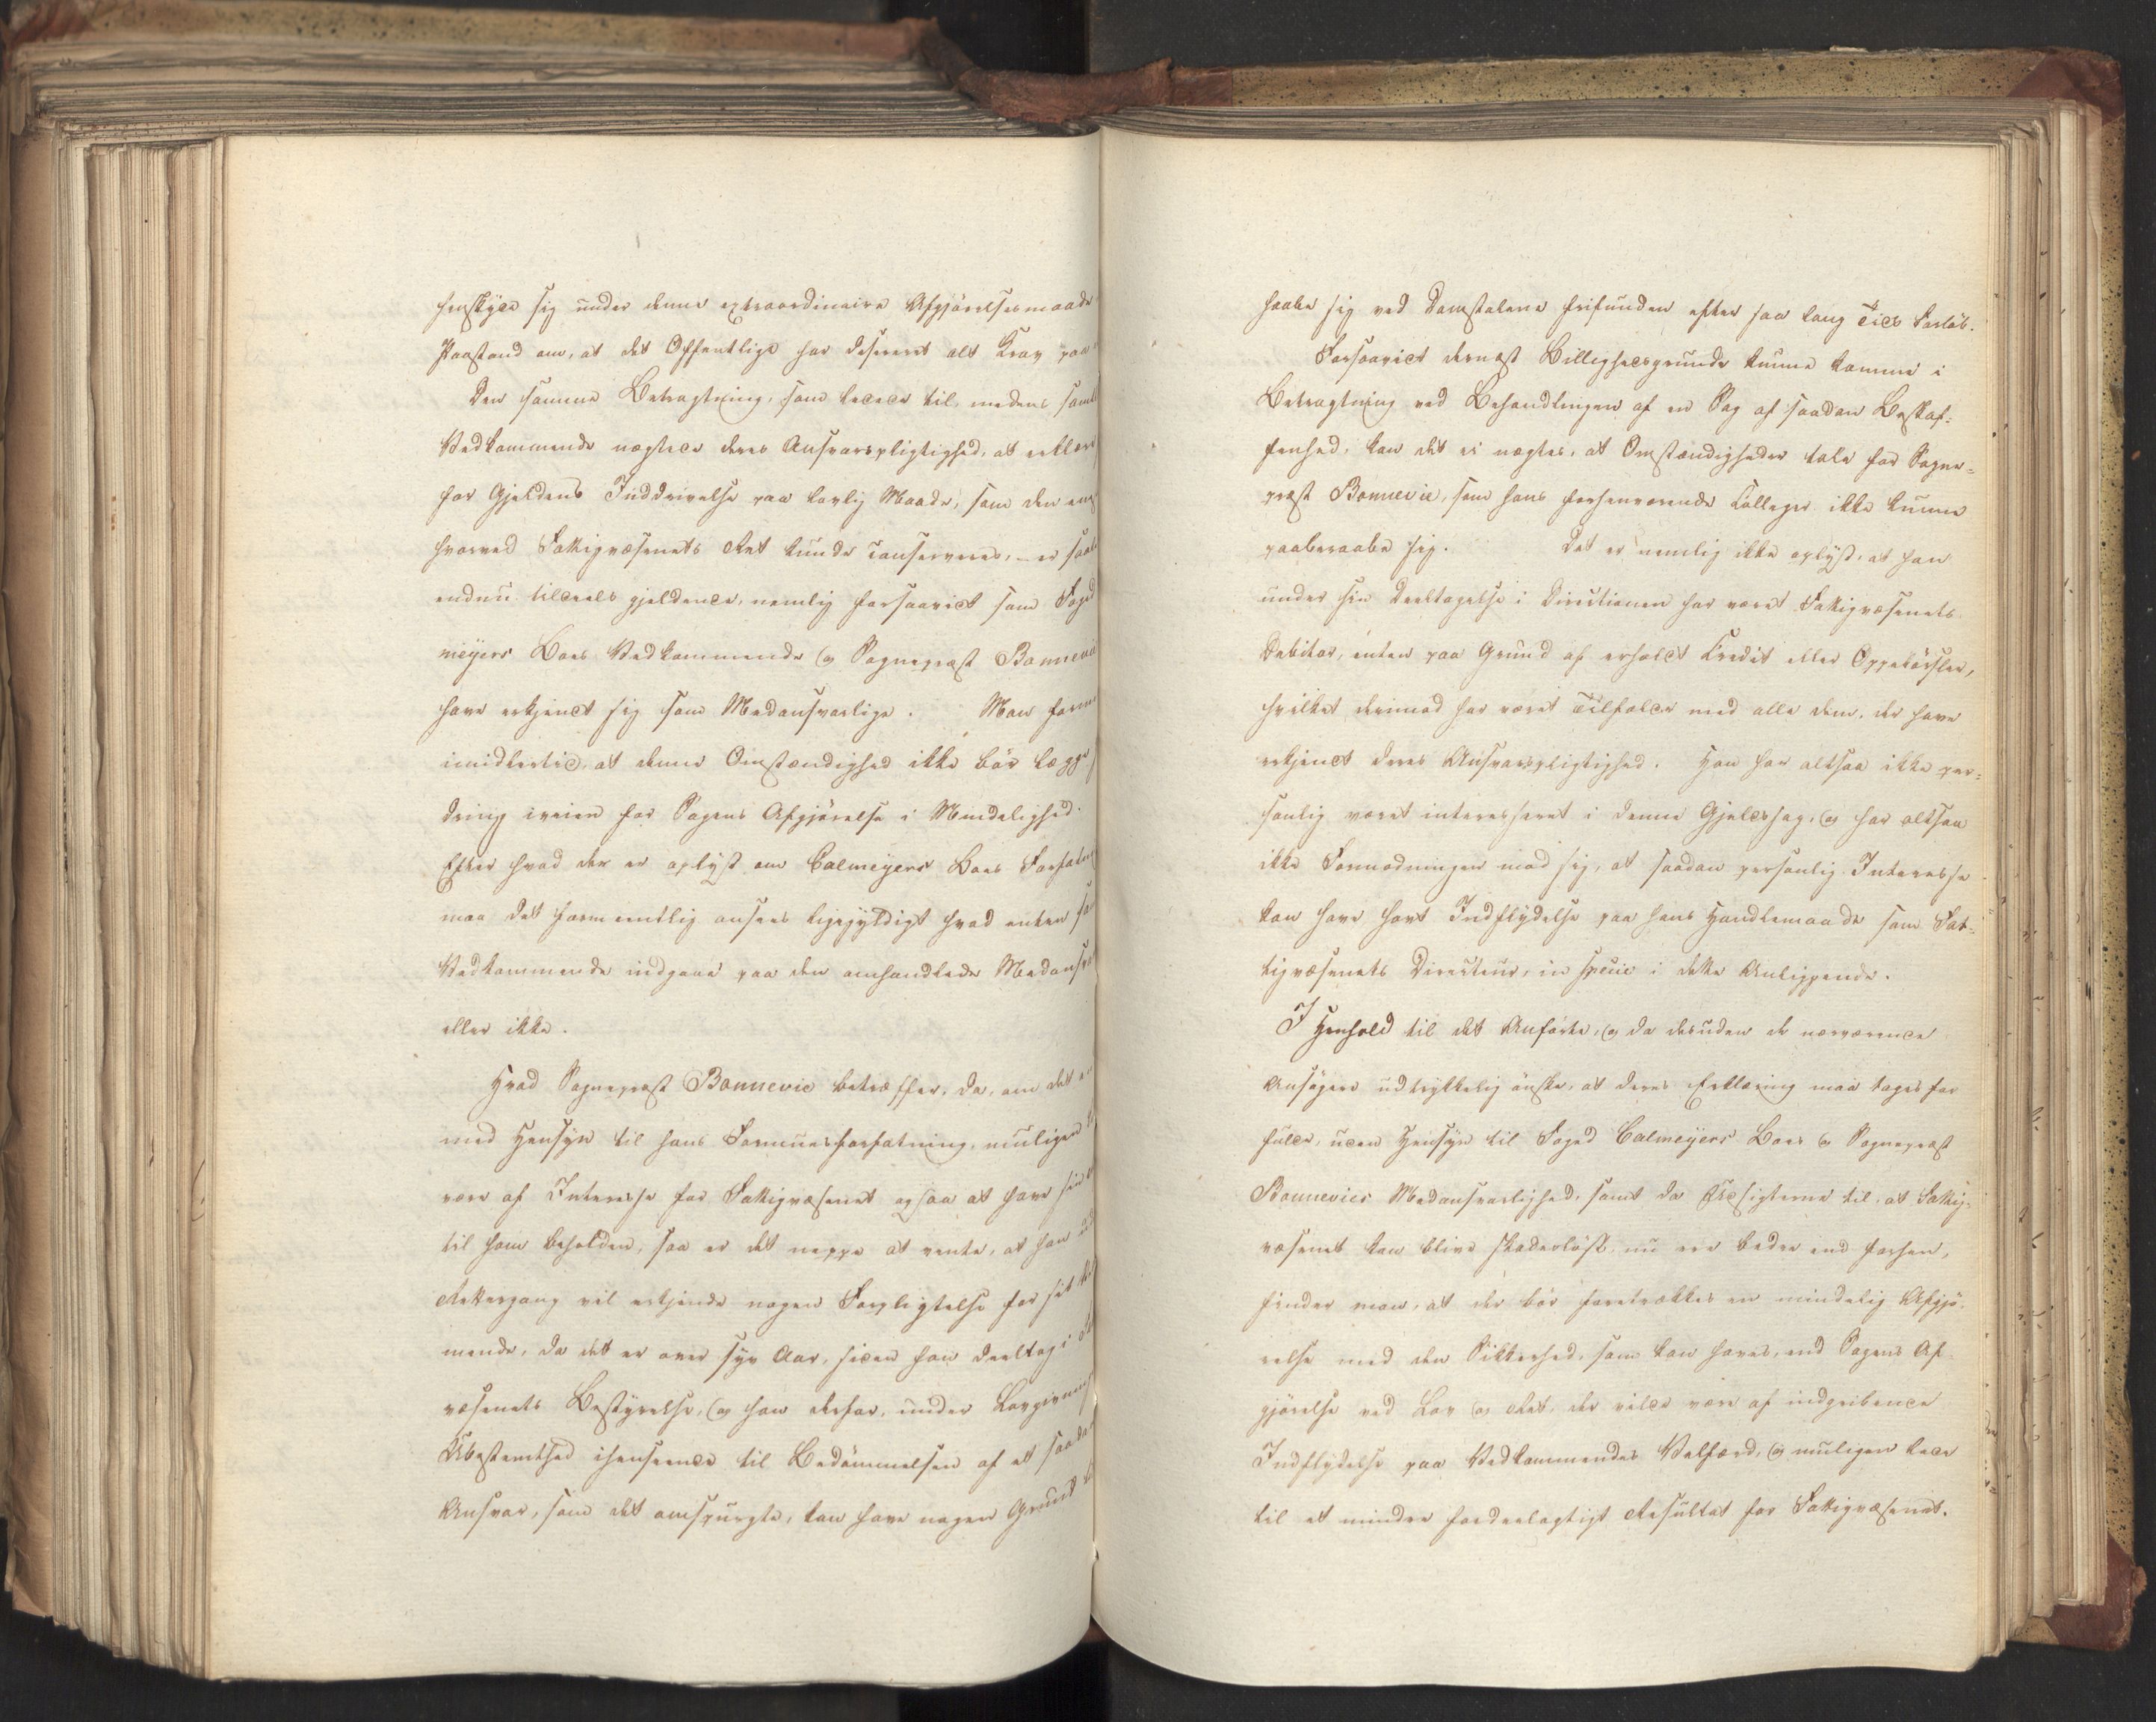 henskyde sig under denne extraordinaire Afgjörelsesmaade
Paastand om, at det Offentlige har desereret alt Krav paa
Den samme Betragtning, som ledede til, medens saml
Vedkommende nægtede deres Ansvarspligtighed, at erklære
for Gjeldens Inddrivelse paa lovlig Maade, som den enes
hvorved Fattigvæsenets Ret kunde conserveres, – er saal
endnu tildeels gjeldende, nemlig forsaavidt som Foged
meyers Boes Vedkommende og Sognepræst Bonnevie
have erkjendt sig som Medansvarlige. Man form
imidlertid, at denne Omstændighed ikke bör lægge
dring iveien for Sagens Afgjörelse i Mindelighed.
Efter hvad der er oplyst om Calmeyers Boes Forfatn
maa det formeentlig ansees ligegyldigt hvad enten
Vedkommende indgaae paa den omhandlede Medansva
eller ikke.
Hvad Sognepræst Bonnevie betræffer, da, om det e
med Hensyn til hans Formuesforfatning, muligen
være af Interesse for Fattigvæsenet ogsaa at have sin
til ham beholden, saa er det neppe at vente, at han
Rettergang vil erkjende nogen Forpligtelse for sit
mende, da det er over syv Aar, siden han deeltog i
væsenets Bestyrelse, og han derfor, under Lovgivning
Ubestemthed ihenseende til Bedömmelsen af et saadan
Ansvar, som det omspurgte, kan have nogen Grund
haabe sig ved Domstolene frifunden efter saa lang Tids Forlöb.
Forsaavidt dernæst Billighedsgrunde kunne komme i
Betragtning ved Behandlingen af en Sag af saadan Beskaf-
fenhed, kan det ei nægtes, at Omstændigheder tale for Sogne-
præst Bonnevie, som hans forhenværende Colleger ikke kunne
paaberaabe sig. Det er nemlig ikke oplyst, at han
under sin Deeltagelse i Directionen har været Fattigvæsenets
Debitor, enten paa Grund af erholdt Credit eller Oppebörsler,
hvilket derimod har været Tilfældet med alle dem, der have
erkjendt deres Ansvarspligtighed. Han har altsaa ikke per-
sonlig været interesseret i denne Gjeldssag, og har altsaa
ikke Formodningen mod sig, at saadan personlig Interesse
kan have havt Indflydelse paa hans Handlemaade som Fat-
tigvæsenets Directeur, in specie i dette Anliggende.
I Henhold til det Anförte, og da desuden de nærværende
Ansögere udtrykkelig önske, at deres Erklæring maa tages for
fulde, uden Hensyn til Foged Calmeyers Boes og Sognepræst
Bonnevies Medansvarlighed, samt da Udsigterne til, at Fattig-
væsenet kan blive skadeslöst, nu ere bedre end forhen,
finder man, at der bör foretrækkes en mindelig Afgjö-
relse med den Sikkerhed, som kan haves, end Sagens Af-
gjörelse ved Lov og Ret, der vilde være af indgribende
Indflydelse paa Vedkommendes Velfærd, og muligen lede
til et mindre fordeelagtigt Resultat for Fattigvæsenet.